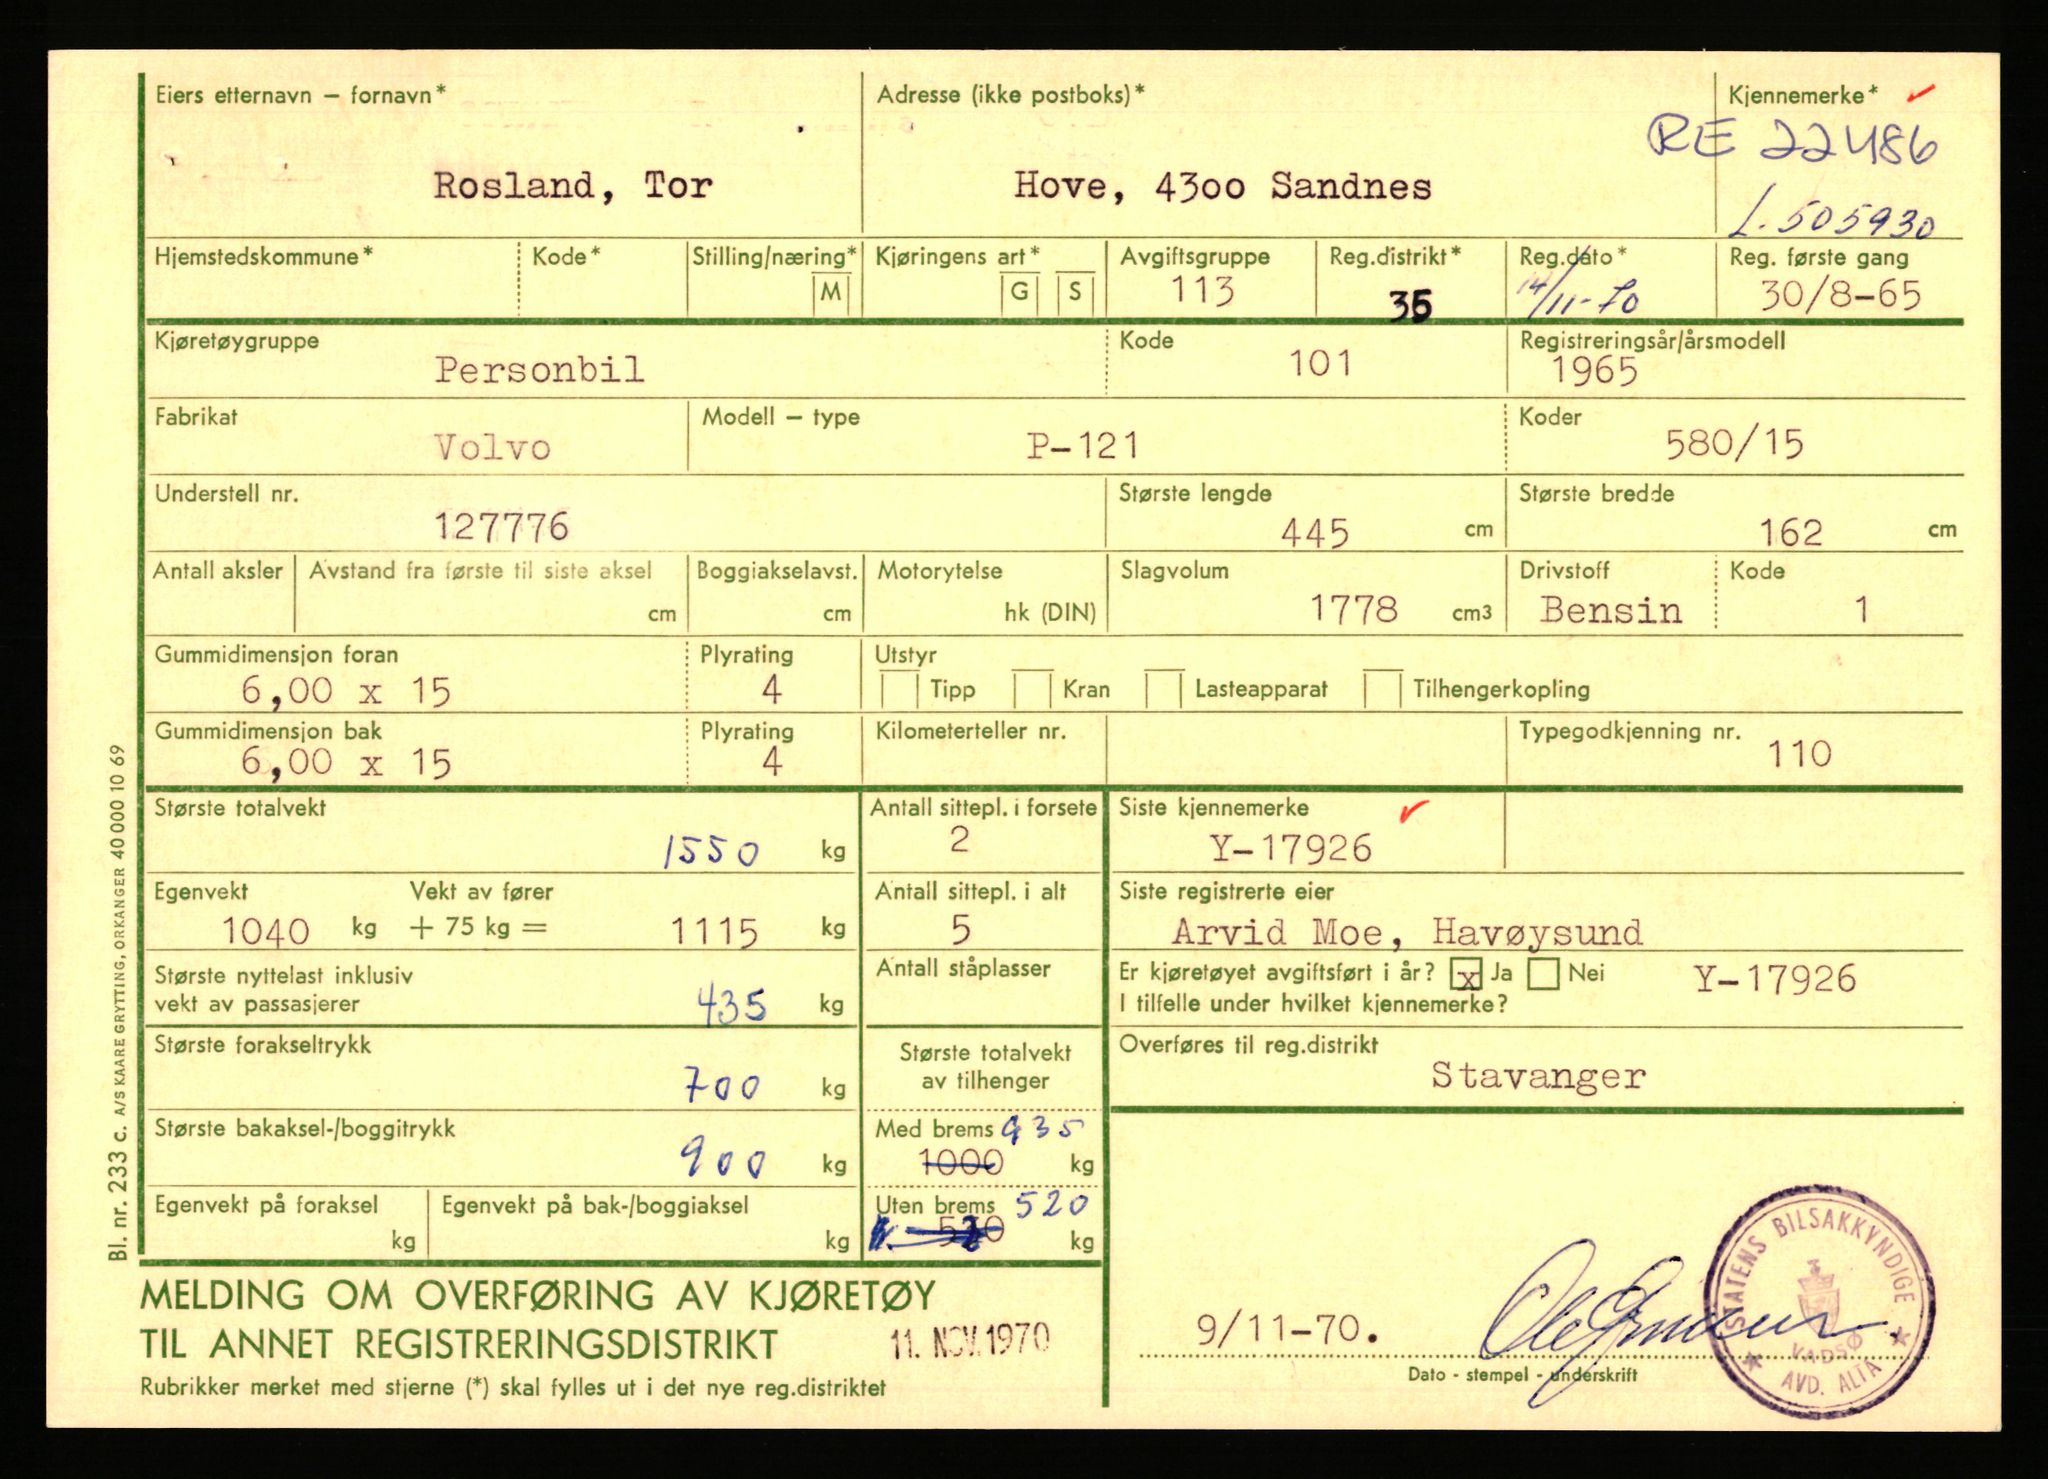 Eiers etternavn – fornavn*
Adresse (ikke postboks)*
Kjennemerke*
RE 22486
Rosland, Tor
Hove, 4300 Sandnes
L.505930
Hjemstedskommune*
Kode*
Stilling/næring*
M
Kjøringens art*
G
S
Avgiftsgruppe
113
Reg.distrikt*
35
Reg.dato*
14/11-70
Reg. første gang
30/8-65
Kjøretøygruppe
Personbil
Kode
101
Registreringsår/årsmodell
1965
Fabrikat
Volvo
Modell – type
P-121
Koder
580/15
Understell nr.
127776
Største lengde
445 cm
Største bredde
162 cm
Antall aksler
Avstand fra første til siste aksel
cm
Boggiakselavst.
cm
Motorytelse
hk (DIN)
Slagvolum
1778 cm3
Drivstoff
Bensin
Kode
1
Gummidimensjon foran
6,00 x 15
Plyrating
4
Utstyr
Tipp
Kran
Lasteapparat
Tilhengerkopling
Gummidimensjon bak
6,00 x 15
Plyrating
4
Kilometerteller nr.
Typegodkjenning nr.
110
Største totalvekt
1550 kg
Antall sittepl. i forsete
2
Siste kjennemerke
Y-17926
Egenvekt
1040 kg
Vekt av fører
+ 75 kg =
1115 kg
Antall sittepl. i alt
5
Siste registrerte eier
Arvid Moe, Havøysund
Største nyttelast inklusiv
vekt av passasjerer
435 kg
Antall ståplasser
Er kjøretøyet avgiftsført i år? x Ja Nei
Y-17926
I tilfelle under hvilket kjennemerke?
Største forakseltrykk
700 kg
Største totalvekt
av tilhenger
Overføres til reg.distrikt
Stavanger
Største bakaksel-/boggitrykk
900 kg
Med brems 935
1000 kg
Egenvekt på foraksel
kg
Egenvekt på bak-/boggiaksel
kg
Uten brems 520
kg
MELDING OM OVERFØRING AV KJØRETØY
TIL ANNET REGISTRERINGSDISTRIKT
11. NOV. 1970
Rubrikker merket med stjerne (*) skal fylles ut i det nye reg.distriktet
9/11-70.
Dato - stempel - underskrift
STATENS BILSAKKYNDIGE
VADSØ
AVD. ALTA
Bl. nr. 233 c. A/S KAARE GRYTTING, ORKANGER 40 000 10 69